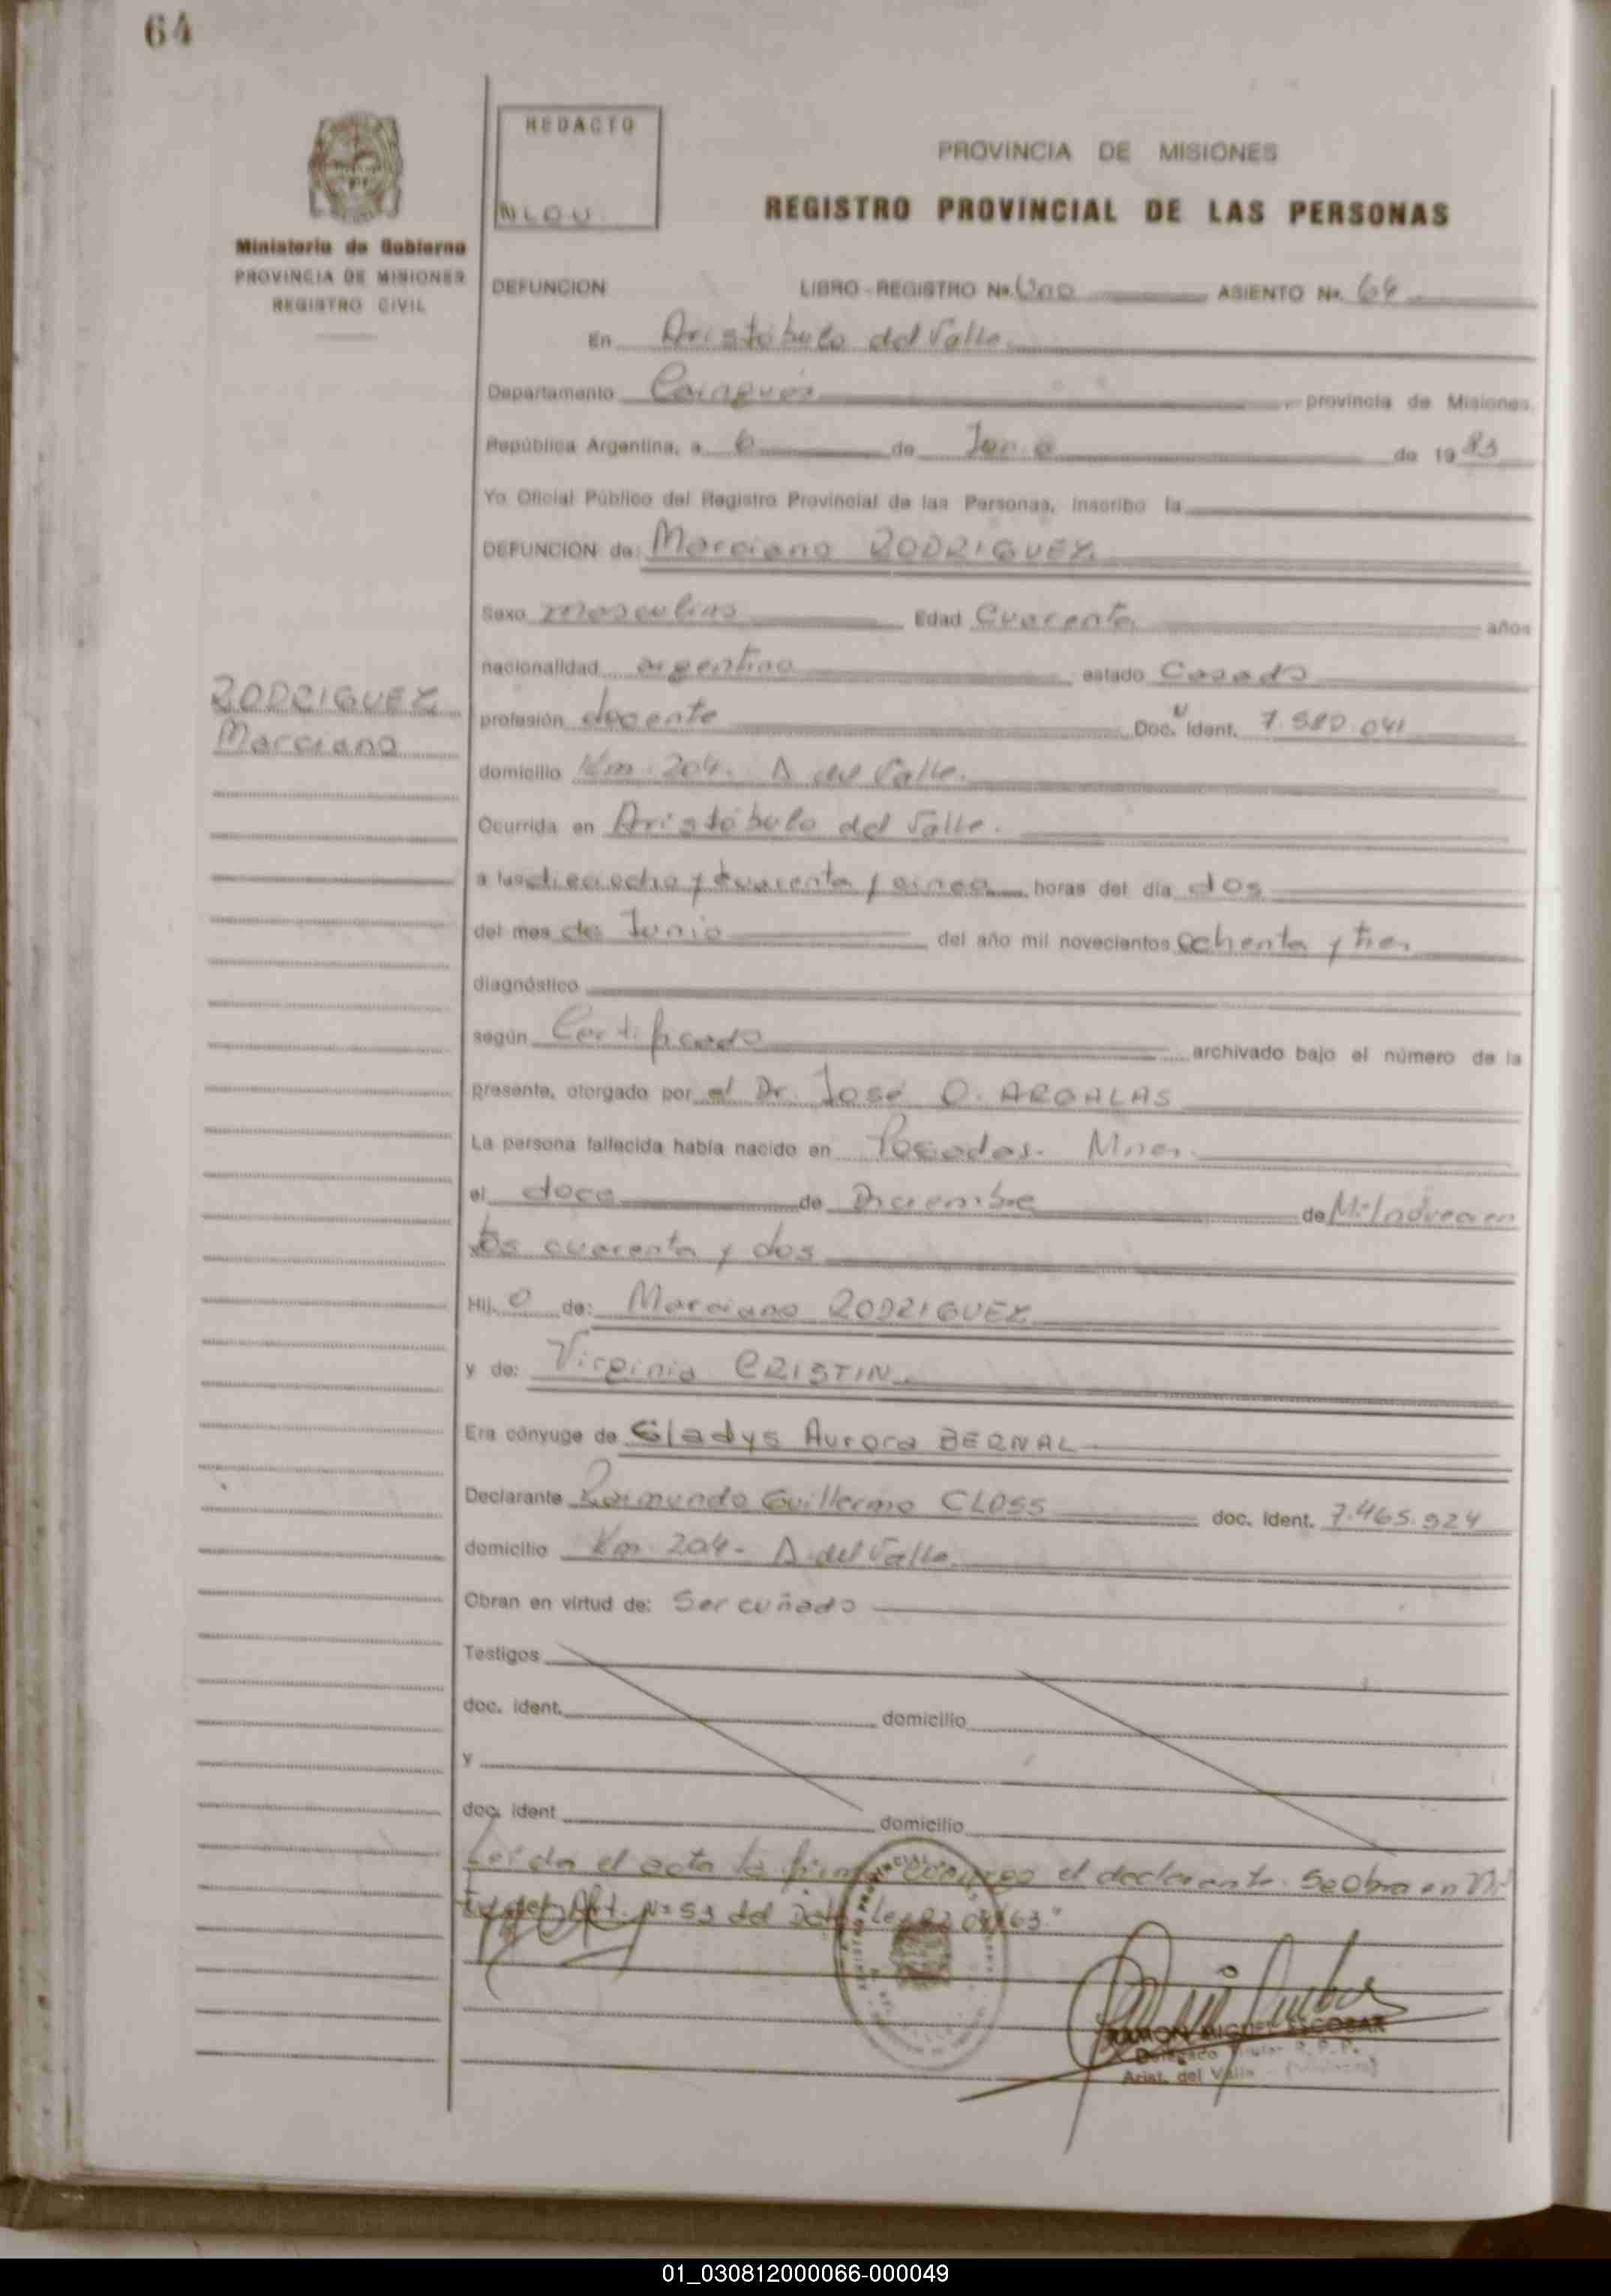 64
REDACTO
N L O U
PROVINCIA DE MISIONES
REGISTRO PROVINCIAL DE LAS PERSONAS
Ministerio de Gobierno
PROVINCIA DE MISIONES
REGISTRO CIVIL
DEFUNCION LIBRO - REGISTRO No. Uno ASIENTO No. 64
En Aristóbulo del Valle
Departamento Cainguás, provincia de Misiones,
República Argentina, a 6 de Junio de 19 83
Yo Oficial Público del Registro Provincial de las Personas, inscribo la
DEFUNCION de: Marciano RODRIGUEZ
Sexo masculino Edad Cuarenta años
nacionalidad argentino estado Casado
RODRIGUEZ
Marciano
profesión docente Doc. Ident. 7.580.041
domicilio Km. 204. A del Valle.
Ocurrida en Aristóbulo del Valle.
a las dieciocho y cuarenta y cinco horas del día dos
del mes de Junio del año mil novecientos ochenta y tres
diagnóstico
según Certificado archivado bajo el número de la
presente, otorgado por el Dr. José O. ARGALAS
La persona fallecida había nacido en Posadas. Mnes.
el doce de Diciembre de Mil novecien
tos cuarenta y dos
Hij o de: Marciano RODRIGUEZ
y de: Virginia CRISTIN
Era cónyuge de Gladys Aurora BERNAL
Declarante Raimundo Guillermo CLOSS doc. ident. 7.465.924
domicilio Km. 204- A. del Valle
Obran en virtud de: Ser cuñado
Testigos
doc. ident. domicilio
y
doc. ident domicilio
Leída el acta la firma conmigo el declarante. Se obra en vir
tud del Art. Nº 53 del Ley 63."
RAMON MIGUEL ESCOBAR
Delegado Titular R. P. P.
Arist. del Valle - (Misiones)
01_030812000066-000049